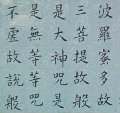 波羅蜜多故
三菩提故知
是大神咒是
是無等等咒
不虛故說般